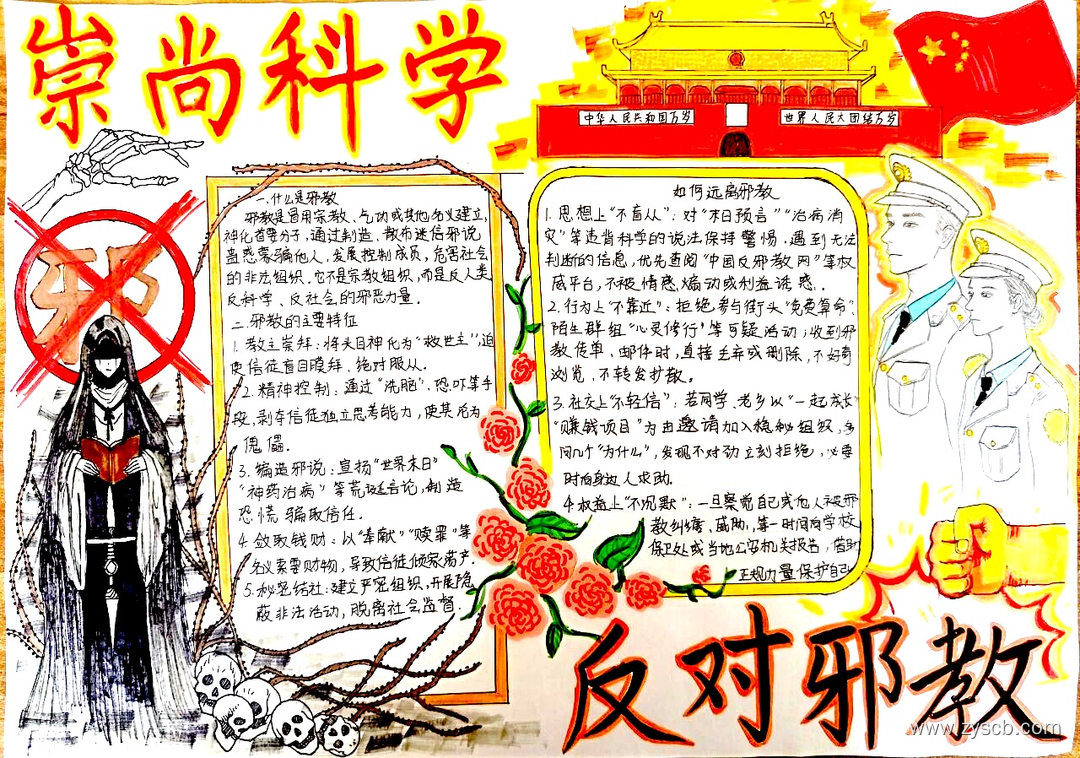 崇尚科学
中华人民共和国万岁
世界人民大团结万岁
邪
一.什么是邪教
邪教是冒用宗教、气功或其他名义建立,
神化首要分子,通过制造、散布迷信邪说
蛊惑蒙骗他人,发展控制成员,危害社会
的非法组织。它不是宗教组织,而是反人类
反科学、反社会的邪恶力量。
二.邪教的主要特征
1.教主崇拜:将头目神化为“救世主”,迫
使信徒盲目膜拜、绝对服从。
2.精神控制:通过“洗脑”、恐吓等手
段,剥夺信徒独立思考能力,使其沦为
傀儡.
3.编造邪说:宣扬“世界末日”
“神药治病”等荒诞言论,制造
恐慌骗取信任.
4.敛取钱财:以“奉献”“赎罪”等
名义索要财物,导致信徒倾家荡产.
5.秘密结社:建立严密组织,开展隐
蔽非法活动,脱离社会监督.
如何远离邪教
1.思想上“不盲从”:对“末日预言”“治病消
灾”等违背科学的说法保持警惕.遇到无法
判断的信息,优先查阅“中国反邪教网”等权
威平台,不被情感煽动或利益诱惑.
2.行为上“不靠近”:拒绝参与街头“免费算命”
陌生群组“心灵修行”等可疑活动;收到邪
教传单、邮件时,直接丢弃或删除,不好奇
浏览、不转发扩散。
3.社交上“不轻信”:若同学、老乡以“一起成长”
“赚钱项目”为由邀请加入隐秘组织,多
问几个“为什么”,发现不对劲立刻拒绝,必要
时向身边人求助.
4.权益上“不沉默”:一旦察觉自己或他人被邪
教纠缠、威胁,第一时间向学校
保卫处或当地公安机关报告,借助
正规力量保护自己
反对邪教
www.zyscb.com